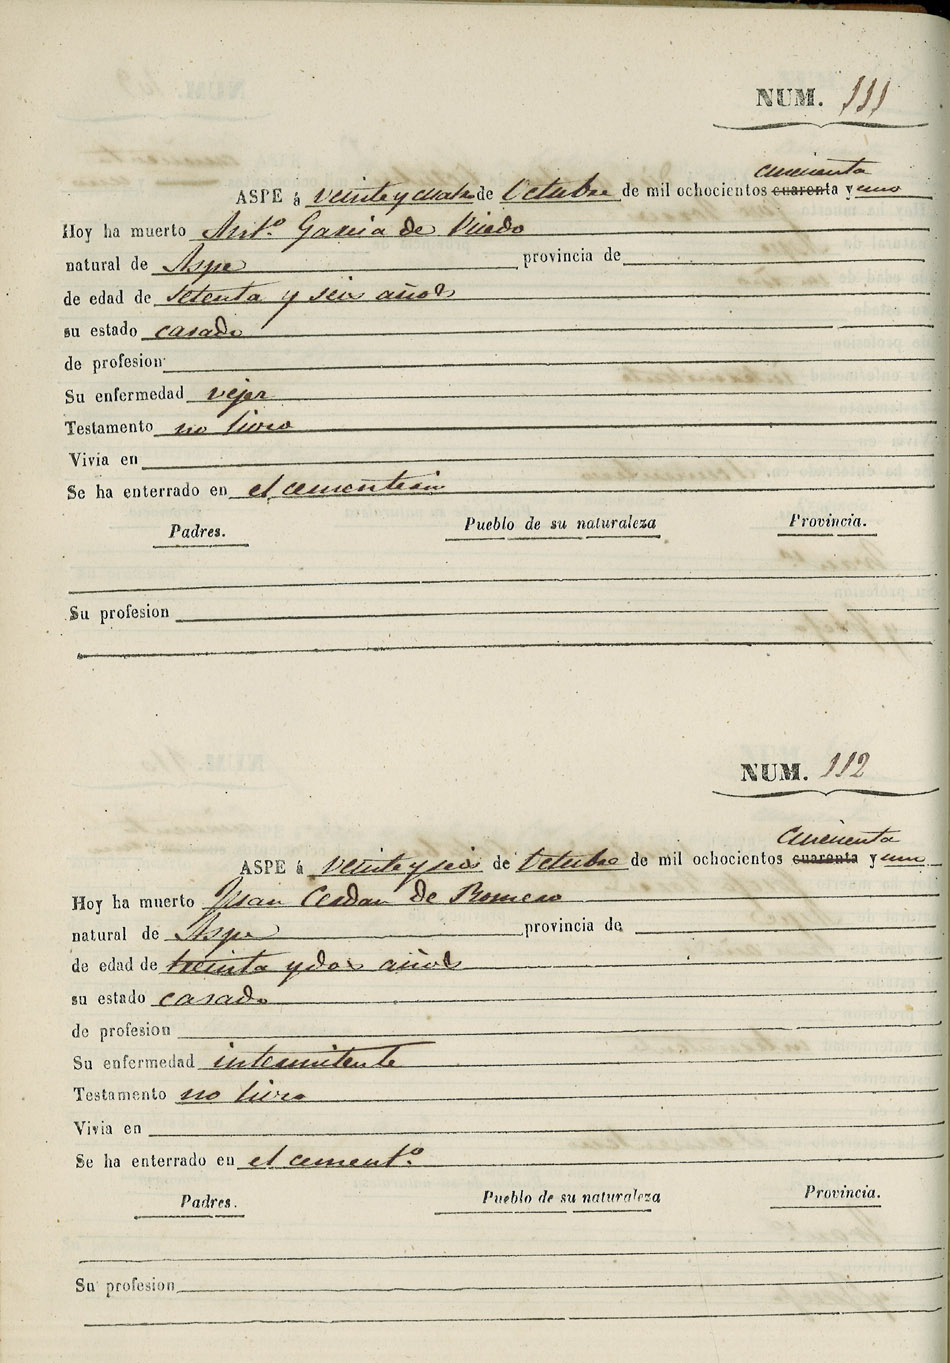 NUM. 111
cincuenta
ASPE á veinte y cuatro de Octubre de mil ochocientos cuarenta y uno
Hoy ha muerto Ant.º Garcia de
natural de Aspe provincia de
de edad de setenta y seis años
su estado casado
de profesion
Su enfermedad vejez
Testamento no hizo
Vivia en
Se ha enterrado en el cementerio
Padres. Pueblo de su naturaleza Provincia.
Su profesion
NUM. 112
Cincuenta
ASPE á veinte y seis de Octubre de mil ochocientos cuarenta y uno
Hoy ha muerto Juan Cerdan de Romero
natural de Aspe provincia de
de edad de treinta y dos años
su estado casado
de profesion
Su enfermedad intermitente
Testamento no hizo
Vivia en
Se ha enterrado en el cement.º
Padres. Pueblo de su naturaleza Provincia.
Su profesion